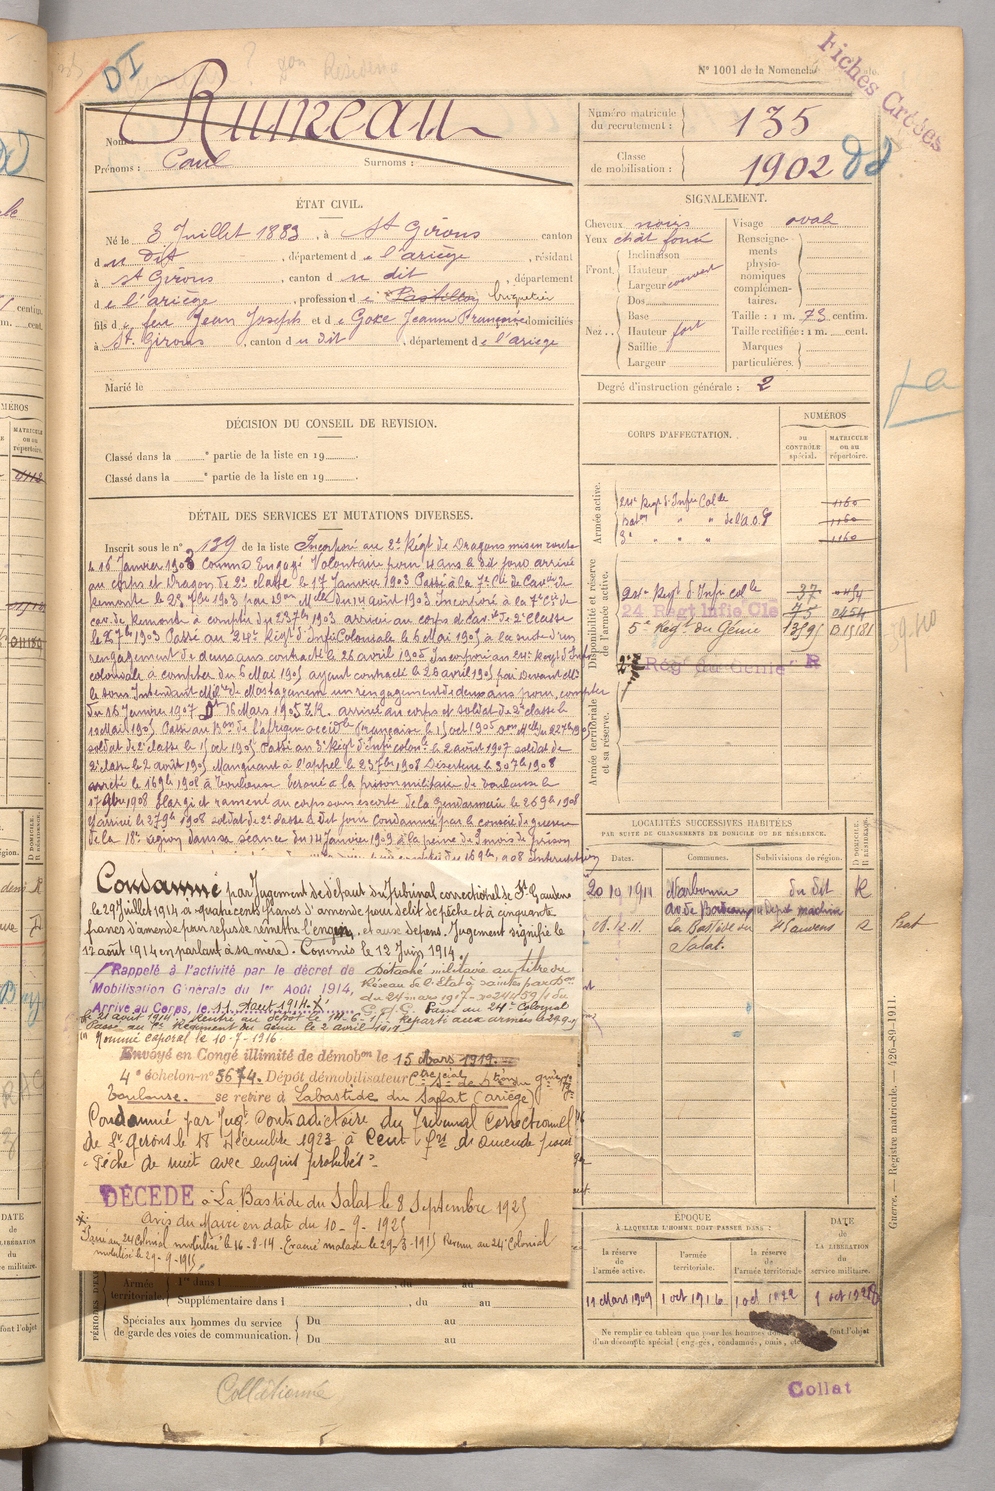 DI
N° 1001 de la Nomencl
Fiches Croisées
Rumeau
Nom
Prénoms : Paul Surnoms :
Numéro matricule du recrutement : 135
Classe de mobilisation : 1902
ÉTAT CIVIL.
Né le 3 Juillet 1883, à St Girons canton
d u dit, département de l'ariège, résidant
à St Girons, canton d u dit, département
de l'ariège, profession de briquetier
fils de feu Jean Joseph et de Goze Jeanne Françoise domiciliés
à St. Girons, canton du dit, département de l'ariège
Marié le
SIGNALEMENT.
Cheveux noirs Visage ovale
Yeux chât foncé
Front. Inclinaison
Hauteur
Largeur couvert
Dos
Nez. Base
Hauteur fort
Saillie
Largeur
Renseignements physionomiques complémentaires.
Taille : 1 m. 73 centim.
Taille rectifiée : 1 m. cent.
Marques particulières.
Degré d'instruction générale : 2
DÉCISION DU CONSEIL DE REVISION.
Classé dans la ° partie de la liste en 19 .
Classé dans la ° partie de la liste en 19 .
CORPS D'AFFECTATION.
NUMÉROS
au CONTRÔLE spécial.
MATRICULE ou au répertoire.
Armée active.
24e Regt d'Infie Colle 1160
Baton " " de l'A.O.F 1160
3e " " " 1160
Disponibilité et réserve de l'armée active.
24e Regt d'Infie colle 37
24 Régt Infie Cle 75 0454
5e Régt du Génie 015181
Régt du Génie R
Armée territoriale et sa réserve.
DÉTAIL DES SERVICES ET MUTATIONS DIVERSES.
Inscrit sous le n° 139 de la liste Incorporé au 2e Régt de Dragons mis en route
le 16 Janvier 1903 comme Engagé Volontaire pour 4 ans le dit jour arrivé
au corps et Dragon de 2e classe le 17 Janvier 1903 Passé à la 7e Cie de Cavrs de
Remonte le 23 7bre 1903 par Don Melle du 14 août 1903 Incorporé à la 7e Cie de
cavrs de Remonte à compter du 23 7bre 1903 arrivé au corps et Cavr de 2e Classe
le 27 bre 1903 Passé au 24e Régt d'Infie Coloniale le 6 Mai 1905 à la suite d'un
rengagement de deux ans contracté le 26 avril 1905 Incorporé au 24e Régt d'Infie
coloniale à compter du 6 Mai 1905 ayant contracté le 26 avril 1905 par Devant Mr
le sous Intendant Mire de Mostaganem un rengagement de deux ans pour compter
du 16 Janvier 1907 Dt 16 Mars 1905 Z.K. arrivé au corps et soldat de 2e classe le
10 Mai 1905 Passé au Bon de l'afrique occidle française le 1 oct 1905
soldat de 2e classe le 1 oct 1905 Passé au 3e Régt d'Infie colonle le 2 août 1907 soldat de
2e classe le 2 août 1907 Manquant à l'appel le 23 7bre 1908 Déserteur le 30 7bre 1908
arrêté le 16 9bre 1908 à Toulouse Ecroué à la prison militaire de Toulouse le
17 9bre 1908 Elargi et ramené au corps sous escorte de la gendarmerie le 26 9bre 1908
Y arrivé le 27 9bre 1908 soldat de 2e classe le dit jour Condamné par le conseil de guerre
de la 18e région dans sa séance du 14 Janvier 1909 à la peine de 3 mois de prison
Condamné par Jugement de défaut du Tribunal correctionnel de St Gaudens
le 29 Juillet 1914 à quatre cents francs d'amende pour délit de pêche et à cinquante
francs d'amende pour refus de remettre l'engin, et aux dépens. Jugement signifié le
12 août 1914 en parlant à sa mère). Commis le 12 Juin 1914.
Rappelé à l'activité par le décret de
Mobilisation Générale du 1er Août 1914,
Arrivé au Corps, le 11 Août 1914.
Détaché militaire au titre du
Réseau de l'Etat à Saintes par Dm
du 24 mars 1917 - no 24459 1/4 du
G.Q.G. Passé au 24e Colonial
Réparti aux armées le 29.9.15
Passé au 5e Régiment du Génie le 2 avril 1917
Nommé caporal le 10-7-1916.
Envoyé en Congé illimité de démobon le 15 Mars 1919.
4e échelon-n° 5674. Dépôt démobilisateur
Toulouse. se retire à Labastide du Salat (Ariège)
Condamné par Jugt Contradictoire du Tribunal Correctionnel
de St Girons le 18 Décembre 1923 à Cent frs de amende pour
"Pêche de nuit avec engins prohibés".
DÉCÉDÉ à La Bastide du Salat le 8 Septembre 1925
Avis du Maire en date du 10-9-1925
Passé au 24 Colonial mobilisé le 16-8-14. Evacué malade le 29-3-1915 Revenu au 24e Colonial
mobilisé le 29-9-1915.
LOCALITÉS SUCCESSIVES HABITÉES
PAR SUITE DE CHANGEMENTS DE DOMICILE OU DE RÉSIDENCE.
Dates. Communes. Subdivisions de région. D DOMICILE. R RÉSIDENCE.
20 10 1911 Narbonne du dit R
La Bastide du Salat. St Gaudens R
ÉPOQUE
À LAQUELLE L'HOMME DOIT PASSER DANS :
la réserve de l'armée active.
l'armée territoriale.
la réserve de l'armée territoriale.
DATE DE LA LIBÉRATION du service militaire.
11 Mars 1909 1 oct 1916 1 oct 1922 1 oct 1928
Ne remplir ce tableau que pour les hommes
d'un décompte spécial (engagés, condamnés, omis, etc font l'objet
Armée territoriale. 1re dans l , du au
Supplémentaire dans l , du au
Spéciales aux hommes du service de garde des voies de communication. Du au
Du au
Guerre. — Registre matricule. — 426-89-1911.
Collationné
Collat